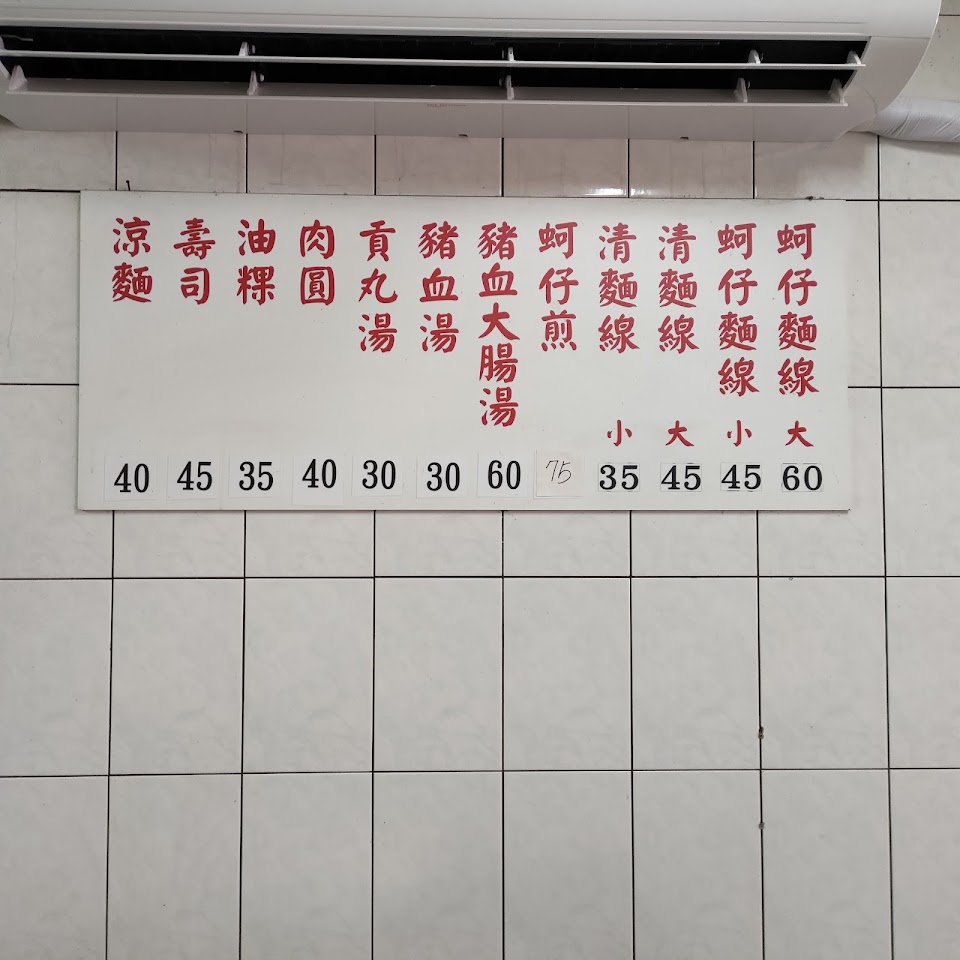 蚵仔麵線 大 60
蚵仔麵線 小 45
清麵線 大 45
清麵線 小 35
蚵仔煎 75
豬血大腸湯 60
豬血湯 30
貢丸湯 30
肉圓 40
油粿 35
壽司 45
涼麵 40